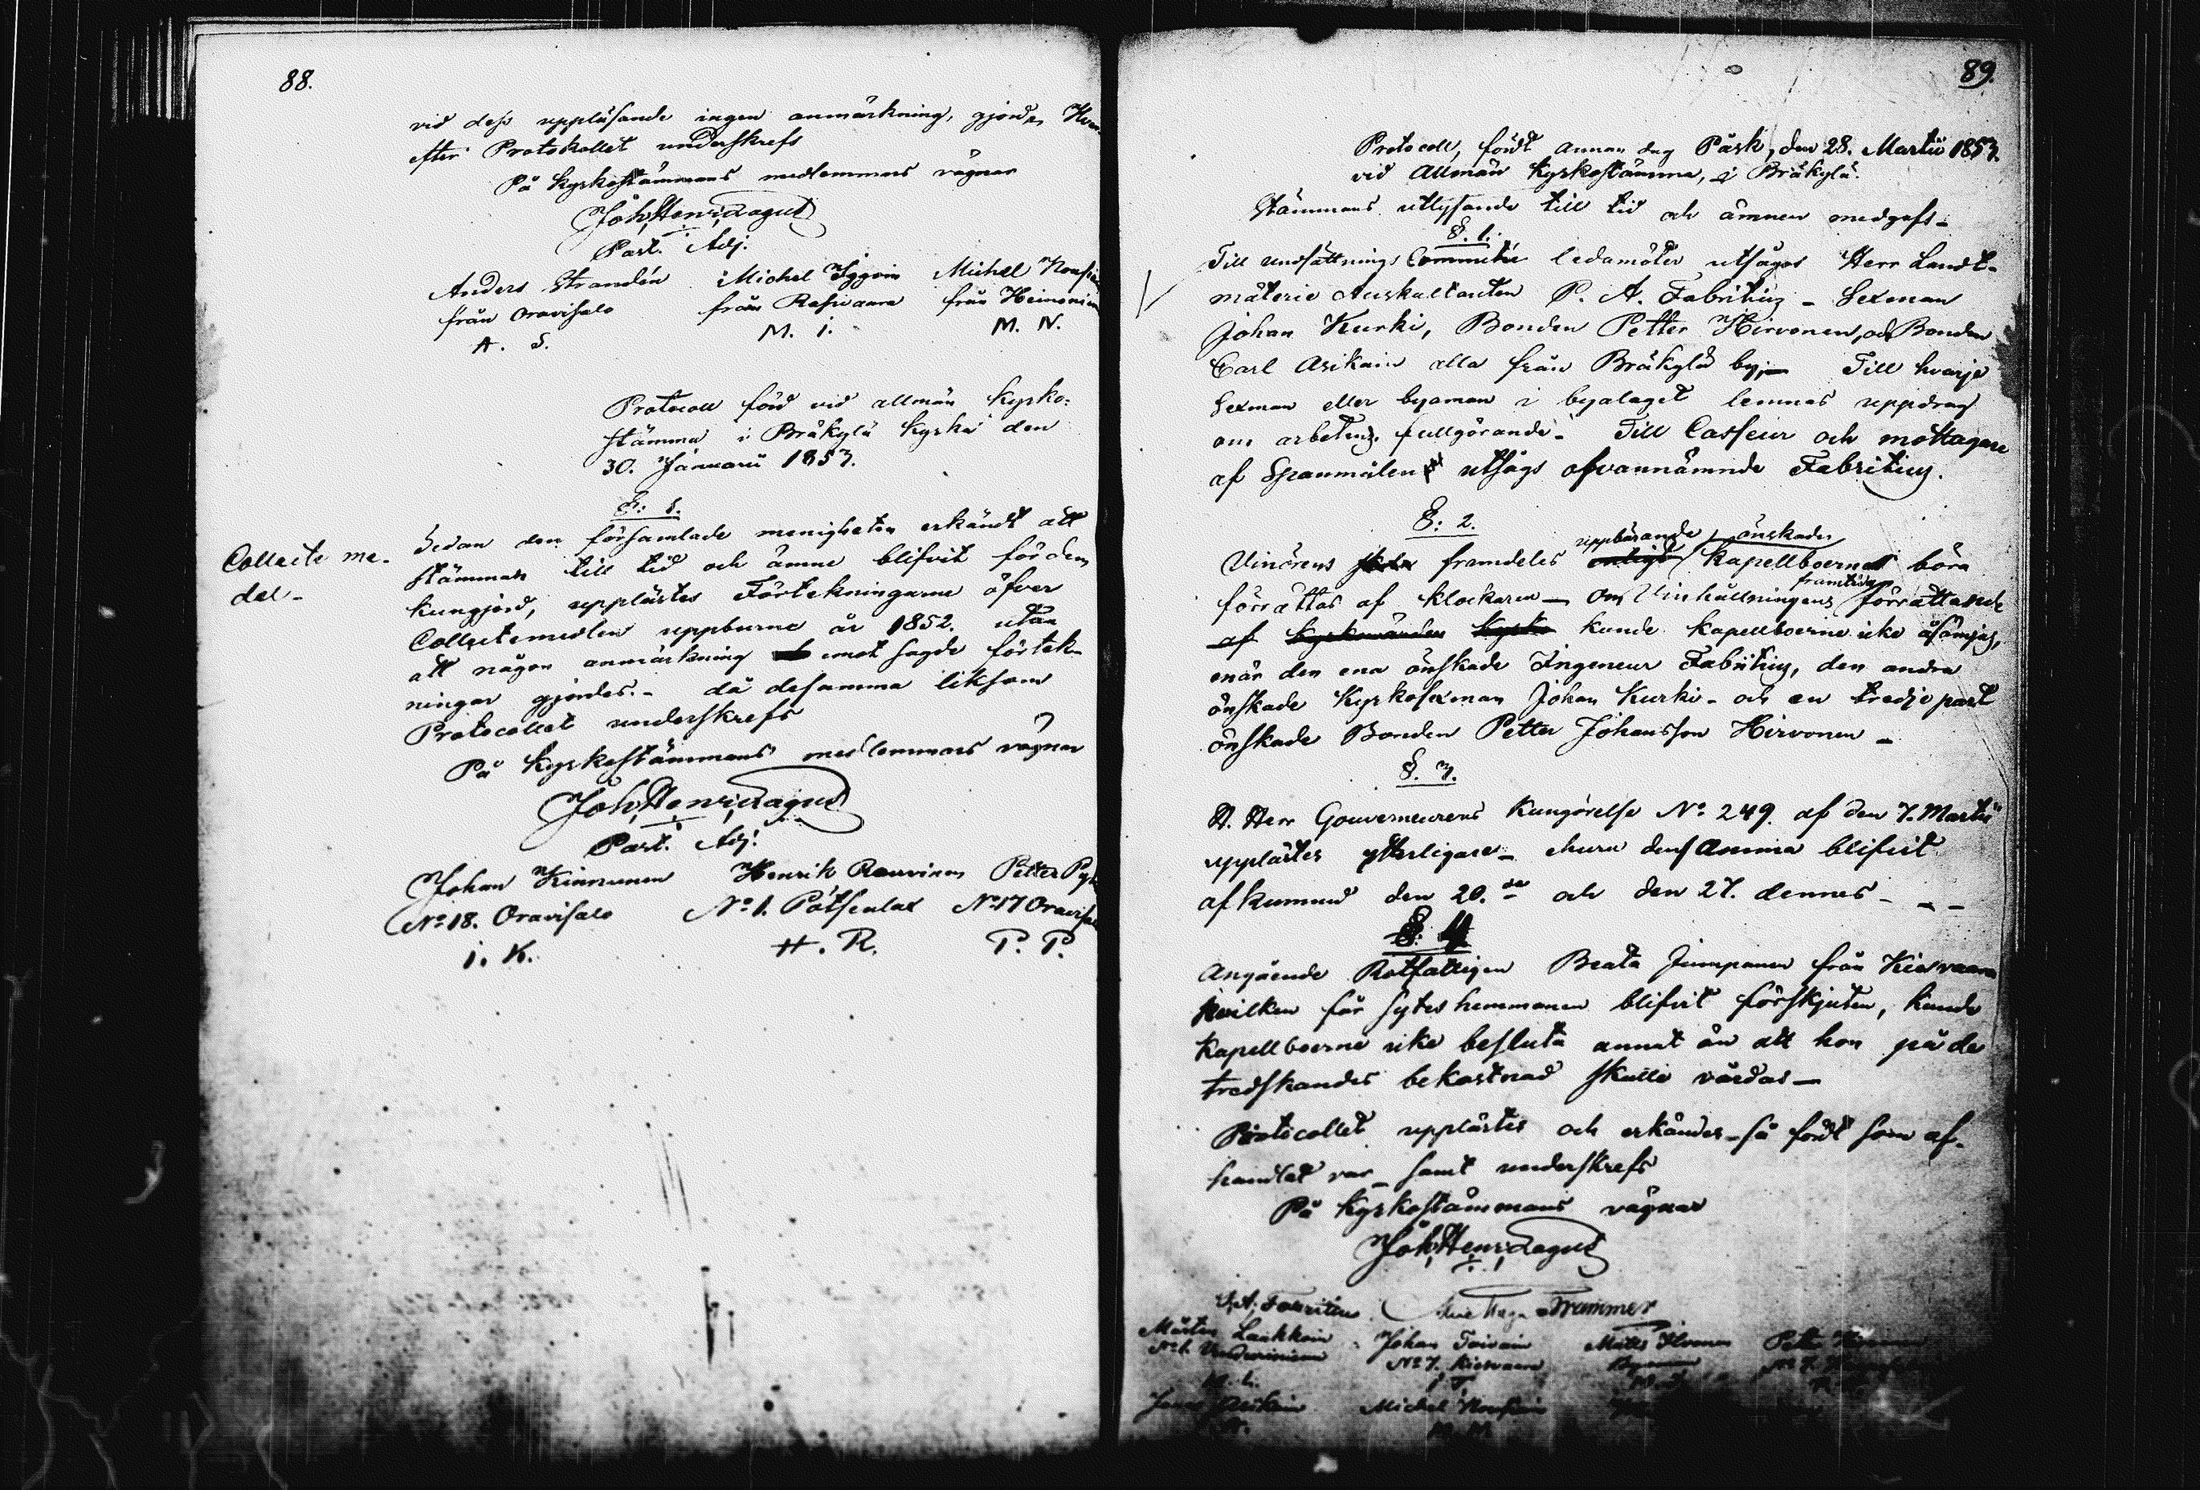 88.
vid dess uppläsande ingen anmärkning, gjordes Hvar-
efter Protokollet underskrefs
På Kyrkostämmans medlemmars vägnar
Joh. Henr. Zagus
Past. Adj.
Anders Strandén Michel Iggoin Michel Nousia
från Oravisalo från Rasivaara från Heinoniem
A. S. M. I. M. N.
Protocoll förd vid allmän Kyrko-
stämma i Bräkylä Kyrka den
30. Januarii 1853.
§: 1.
Collecte me-
del-
Sedan den församlade menigheten erkändt att
stämman till tid och ämne blifvit för dem
kungjord, upplästes Förtekningarne öfver
Collectemedlen uppburne år 1852. utan
att någon anmärkning emot sagde förtek-
ningar gjordes.- då desamma liksom
Protocollet underskrefs
På Kyrkostämmans medlemmars vägnar
Joh. Henr. Zagus
Past. Adj.
Johan Kinnunen Henrik Rouvinen Petter Py
No 18. Oravisalo No 1. Pötsenlax No 17 Oravisa
i. K. H. R. P. P.
89.
Protocoll, fördt annan dag Påsk, den 28. Martii 1853.
vid Allmän Kyrkostämma, i Bräkylä.
Stämmans utlysande till tid och ämnen medgafs-
§. 1.
Till undsättnings Committé ledamöter utsågos Herr Landt-
mäterie Auskultanten P. A. Fabritius - Sexman
Johan Kurki, Bonden Petter Hirvonen, och Bonden
Carl Asikain alla från Bräkylä by;- Till hvarje
Sexman eller byaman i byalaget lemnas uppdrag
om arbetens fullgörande- Till Casseur och mottagare
af Spanmålen utsågs ofvannämnde Fabritius.
§: 2.
uppbärande, önskades
Vinörens framdeles Kapellboerna böra
framtida
förrättas af klockaren- Om Vinhållningens förrättande
af Kyrkovärden Kyrko kunde Kapellboerne icke åsämjas,
enär den ena önskade Ingeneur Fabritius, den andra
önskade Kyrkosexman Johan Kurki- och en tredje part
önskade Bonden Petter Johansson Hirvonen -
§. 3.
H. Herr Gouverneurens Kungörelse No 249. af den 7. Martii
upplästes ytterligare- ehuru densamma blifvit
afkunnad den 20.de och den 27. dennes - - -
§: 4
Angående Rotfattigen Beata Jumpanen från Kiesvaara
hvilken får sytes hemmanen blifvit förskjuten, kunde
Kapellboerne icke besluta annat än att hon på de
tredskandes bekostnad skulle vårdas-
Protocollet upplästes och erkändes-så fördt som af-
handlat var- samt underskrefs
På Kyrkostämmans vägnar
Joh. Henr. Zagus
Trammer
Mårten Laakkoin Johan Toivain Matts
No 1. No 7. Kiesvaara
M. L. J. T.
Asikain Michel Nousiain